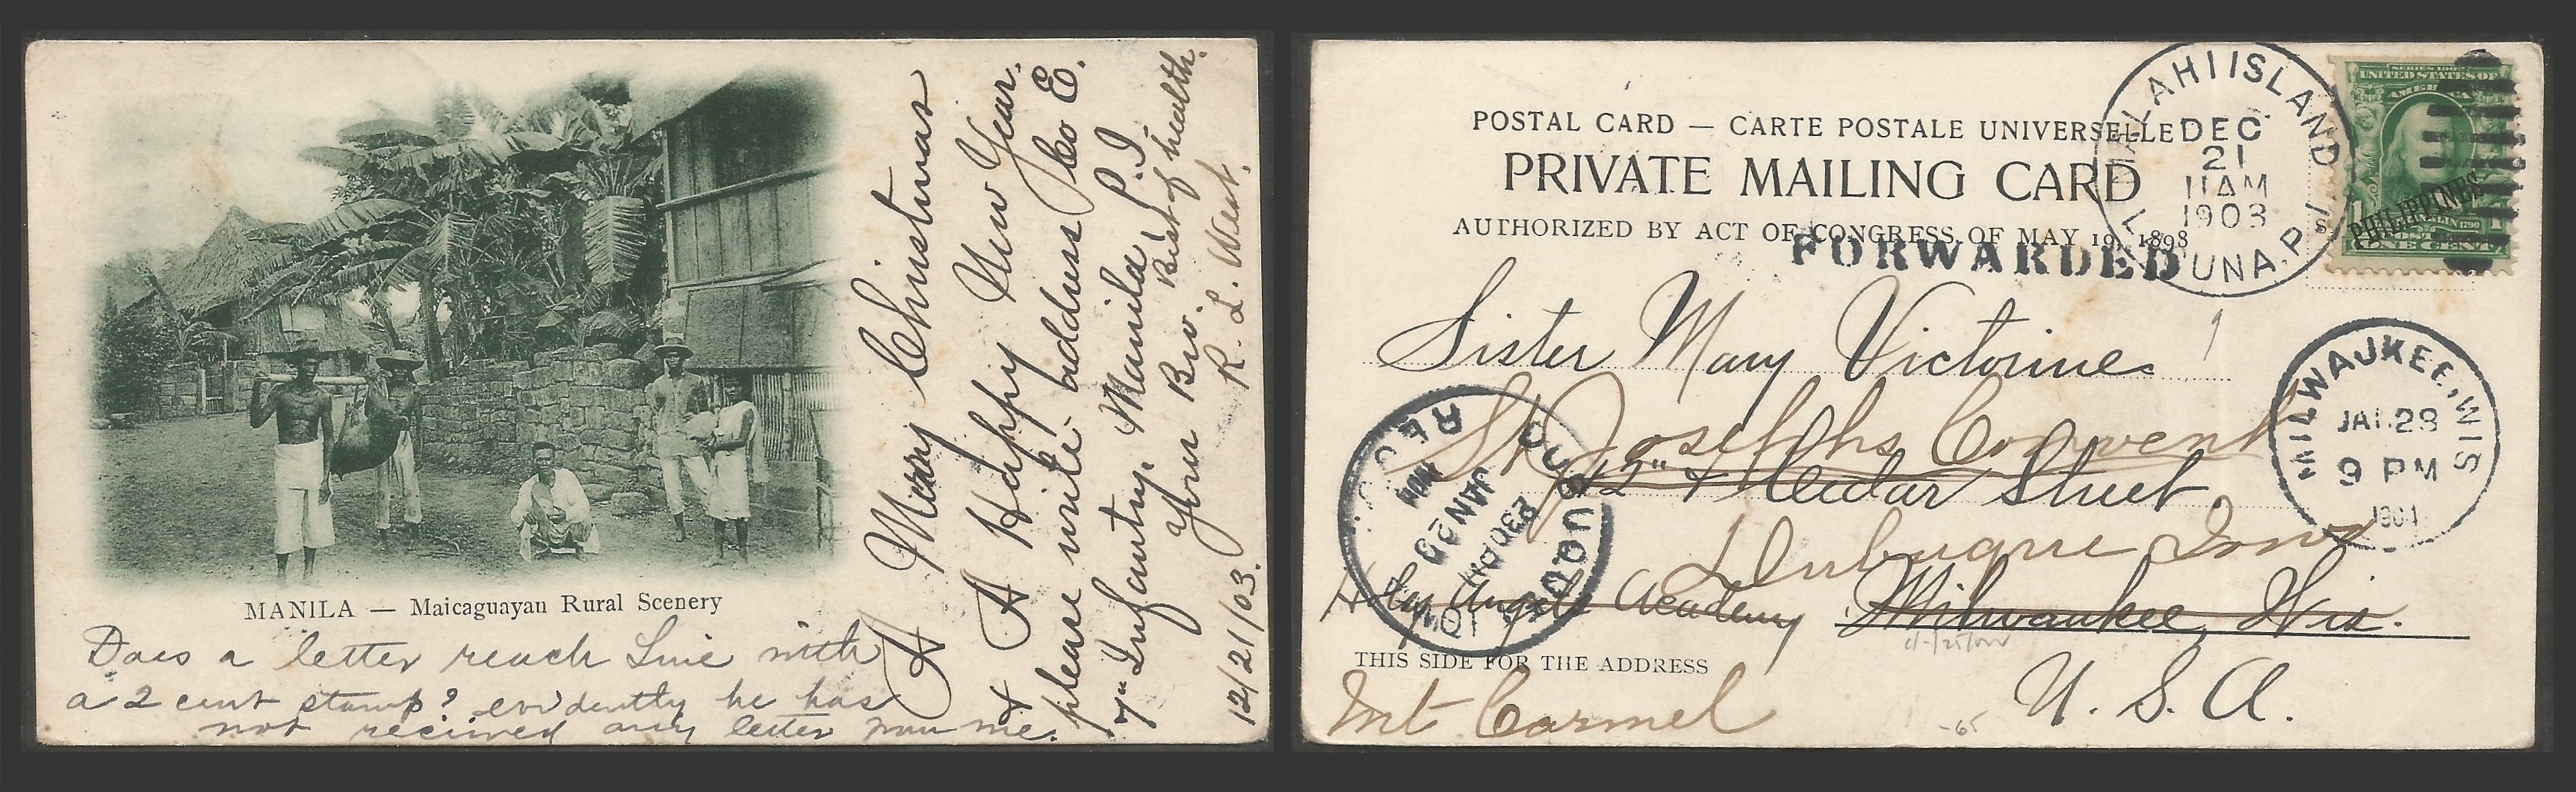 MANILA — Maicaguayan Rural Scenery
Does a letter reach Line with
a 2 cent stamp? evidently he has
not recieved any letter from me.
A Merry Christmas
& A Happy New Year.
please write address Co E.
7" Infantry, Manila P. I.
Best of health.
Your Bro.
R. L. West.
12/21/03.
POSTAL CARD — CARTE POSTALE UNIVERSELLE
PRIVATE MAILING CARD
AUTHORIZED BY ACT OF CONGRESS OF MAY 19, 1898
FORWARDED
MALAHI ISLAND
LAGUNA, P. I.
DEC
21
11 AM
1903
SERIES 1902
UNITED STATES OF
AMERICA
PHILIPPINES
ONE CENT
Sister Mary Victorine
St Josephs Convent
12" & Cedar Street.
Dubuque Iowa
Holy Angels Academy
Milwaukee, Wis.
U. S. A.
THIS SIDE FOR THE ADDRESS
Mt Carmel
-65
MILWAUKEE, WIS
JAN 28
9 PM
1904
DUBUQUE, IOWA
REC'D
JAN 29
230 PM
1904